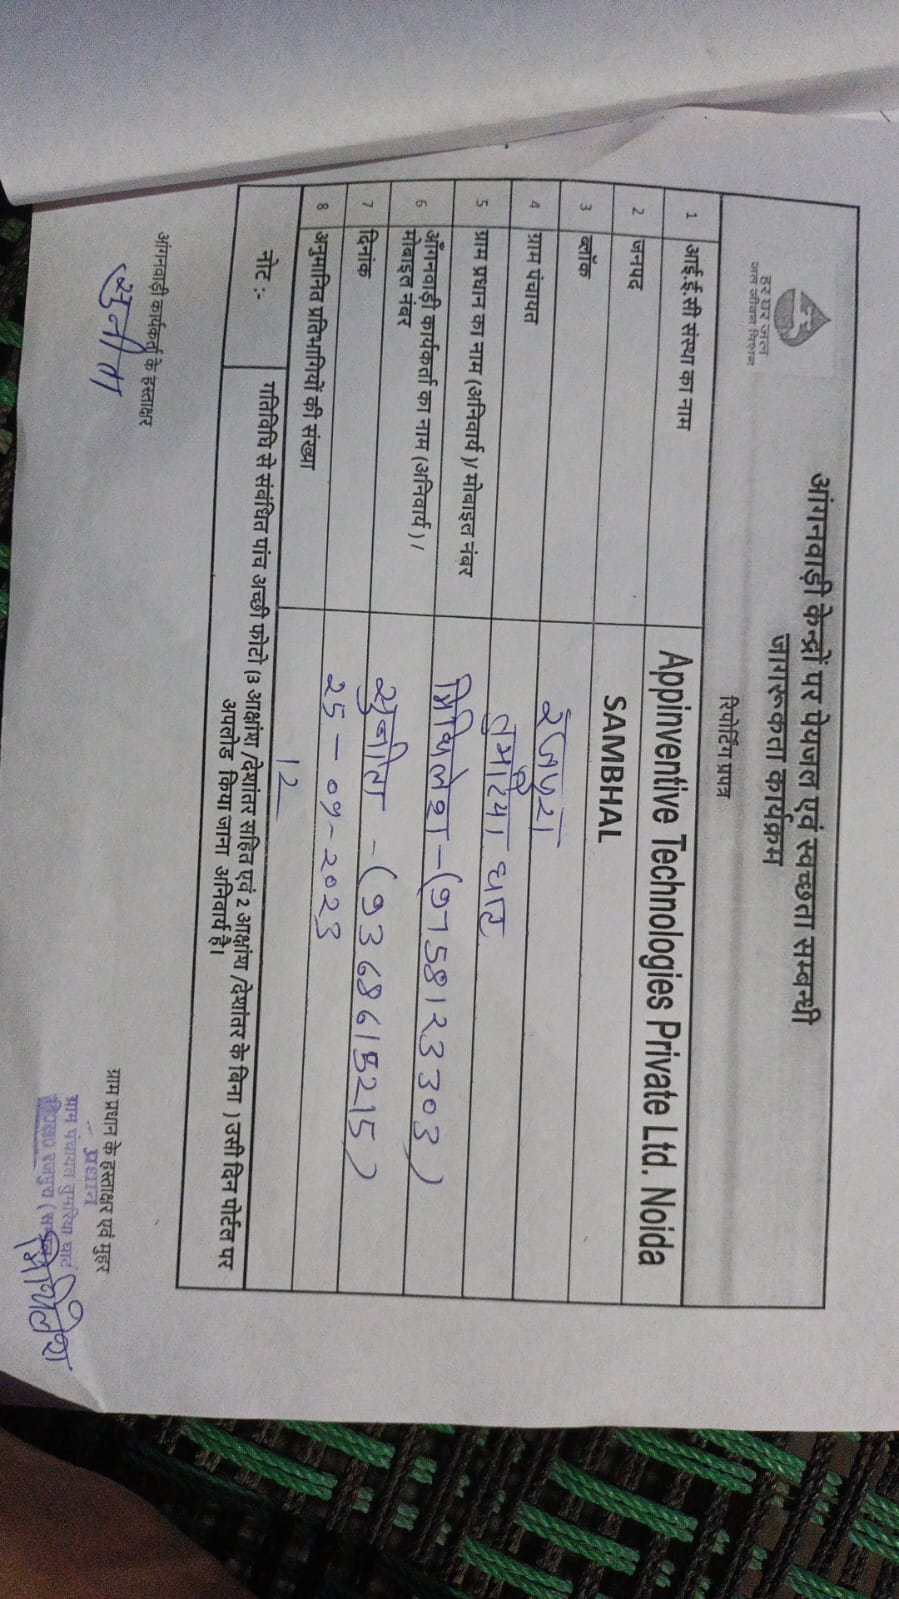 हर घर जल
जल जीवन मिशन
आंगनवाड़ी केन्द्रों पर पेयजल एवं स्वच्छता सम्बन्धी
जागरूकता कार्यक्रम
रिपोर्टिंग प्रपत्र
1 आई.ई.सी संस्था का नाम Appinventive Technologies Private Ltd. Noida
2 जनपद SAMBHAL
3 ब्लॉक रजपुरा
4 ग्राम पंचायत तुमरिया घाट
5 ग्राम प्रधान का नाम (अनिवार्य )/ मोबाइल नंबर मिथिलेश - (9758123303)
6 आँगनवाड़ी कार्यकर्ता का नाम (अनिवार्य ) /
मोबाइल नंबर सुनीता - (9368615215)
7 दिनांक 25-09-2023
8 अनुमानित प्रतिभागियों की संख्या 12
नोट :- गतिविधि से संबंधित पांच अच्छी फोटो (3 आक्षांश /देशांतर सहित एवं 2 आक्षांश /देशांतर के बिना ) उसी दिन पोर्टल पर
अपलोड किया जाना अनिवार्य है।
आंगनवाड़ी कार्यकर्ता के हस्ताक्षर
सुनीता
ग्राम प्रधान के हस्ताक्षर एवं मुहर
प्रधान
ग्राम पंचायत तुमरिया घाट
रजपुरा
मिथिलेश